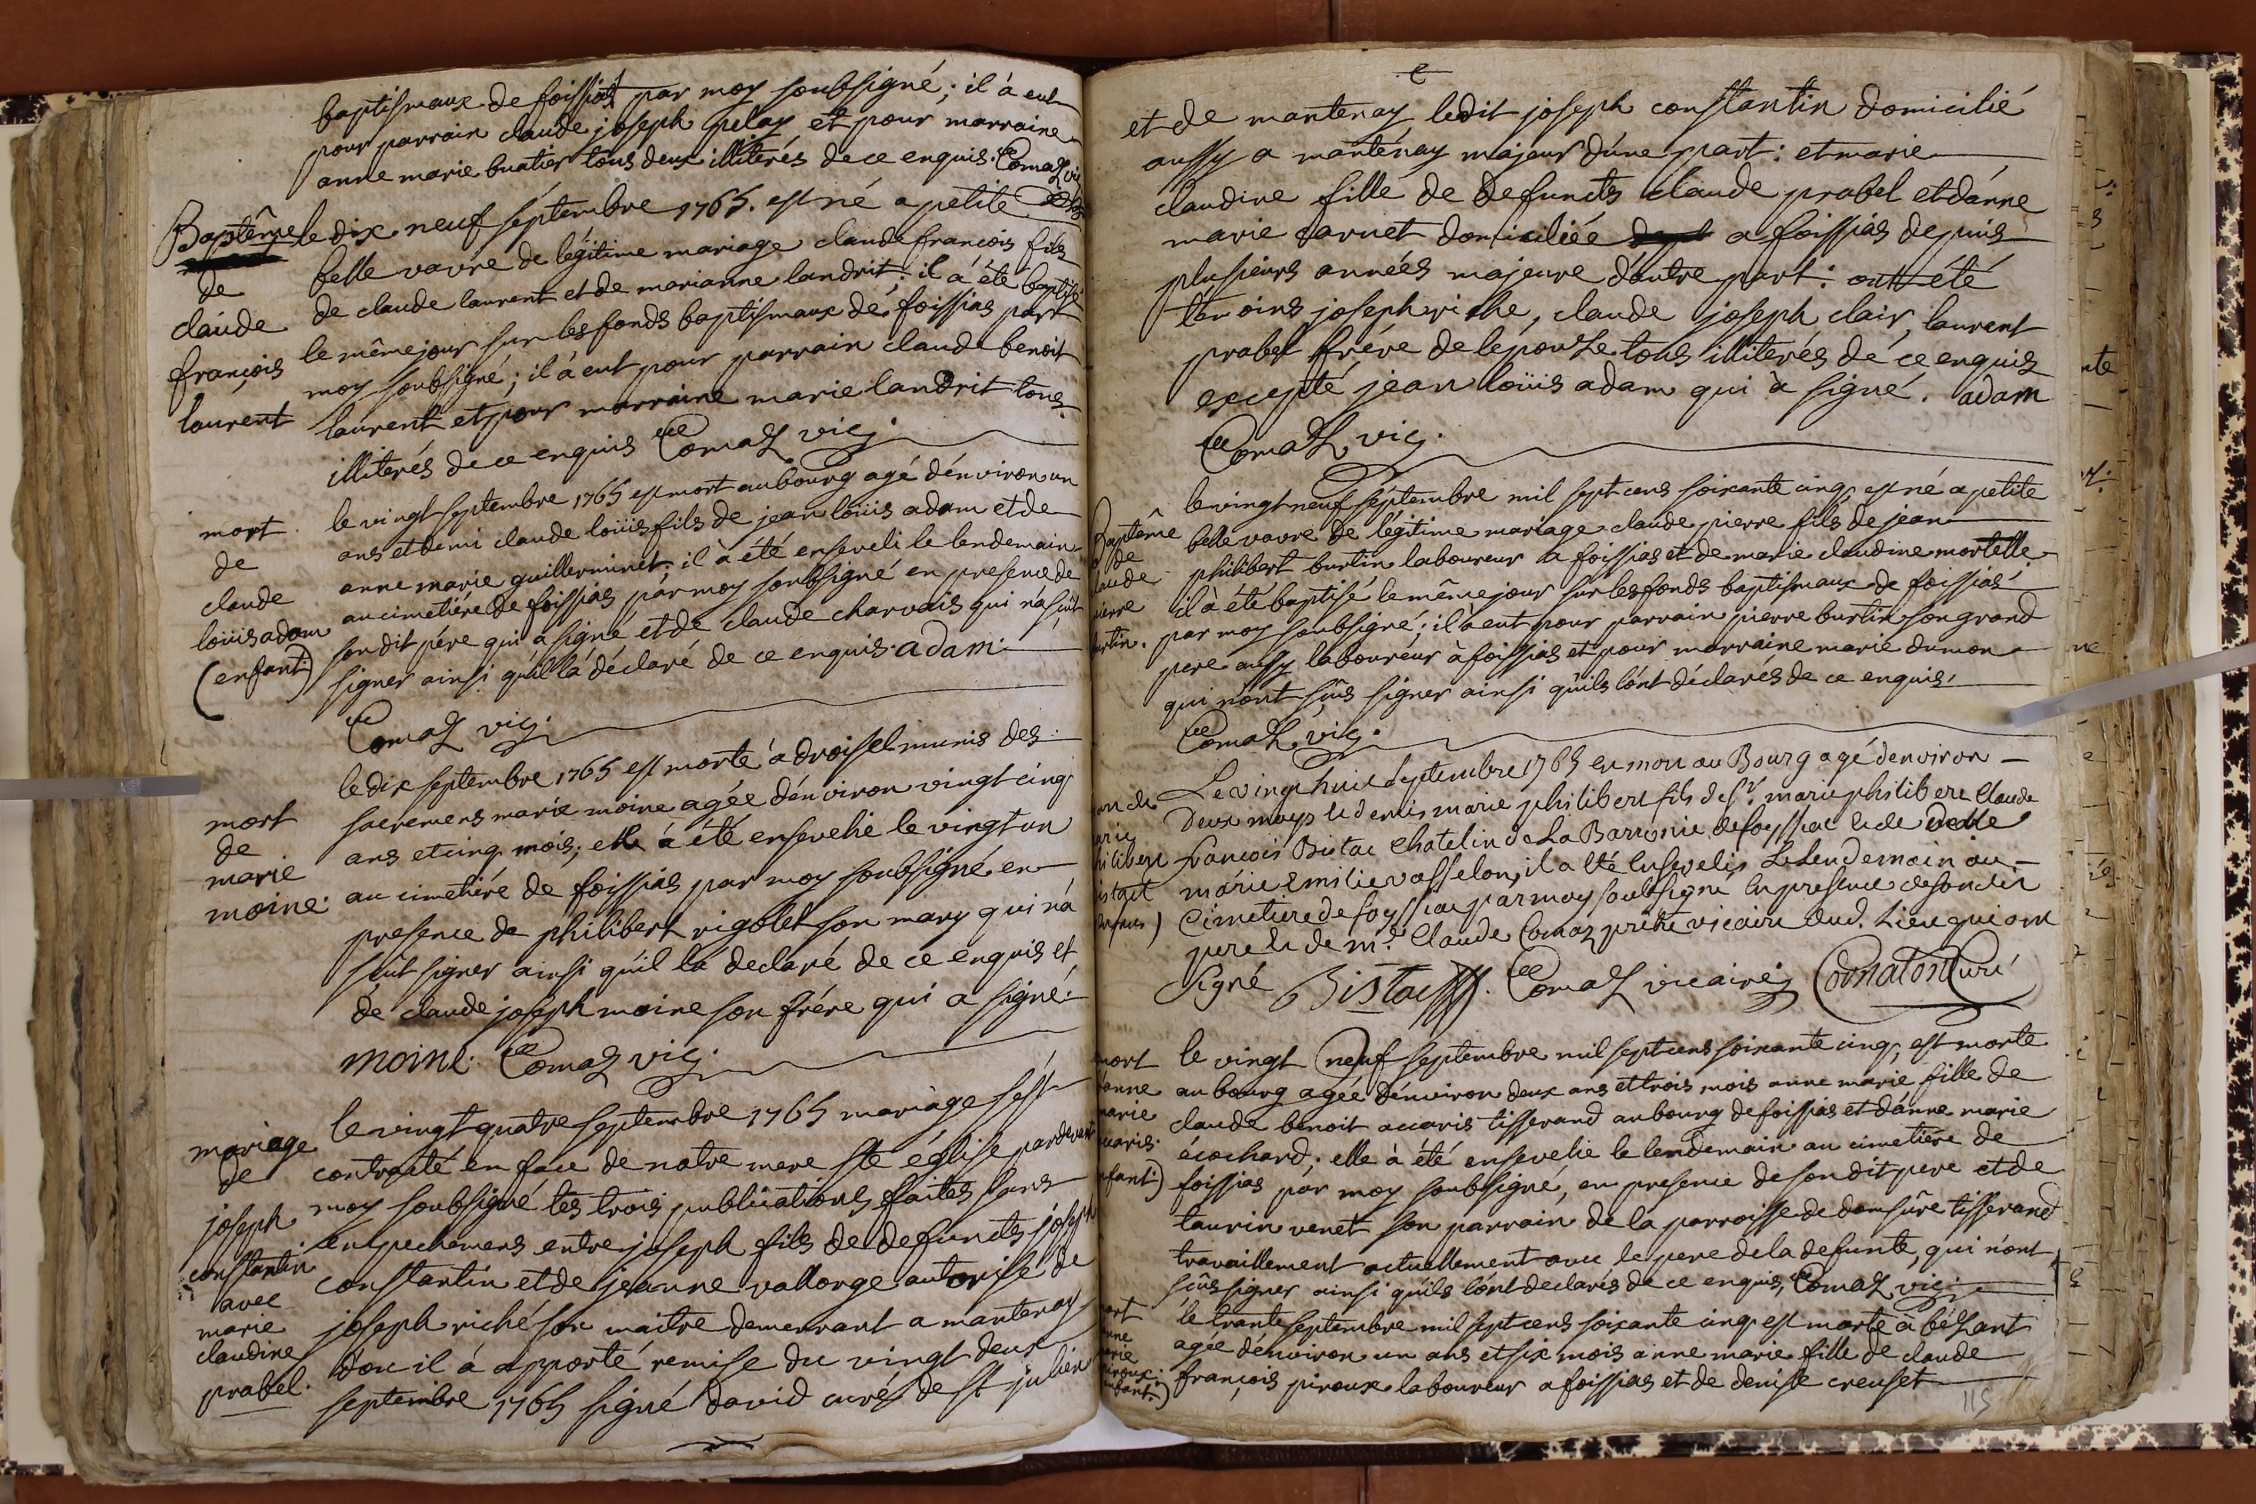 baptismaux de foissiat par moy soubsigné; il à eut
pour parrain claude joseph pelay et pour marraine
anne marie buatier tous deux illiterés de ce enquis. Comaz vic
Baptême
de
claude
françois
laurent
le dix neuf séptembre 1765. est né a petite
belle vavre de légitime mariage claude françois fils
de claude laurent et de marianne landrit; il à été baptisé
le même jour sur les fonds baptismaux de foissias par
moy soubsigné; il à eut pour parrain claude benoit
laurent et pour marraine marie landrit tous
illiterés de ce enquis Comaz vic.
mort
de
claude
loüis adam
(enfant)
le vingt septembre 1765 est mort au bourg agé d'énviron un
ans et demi claude loüis fils de jean loüis adam et de
anne marie guillerminet. il à été enseveli le lendemain
au cimetiére de foissias par moy soubsigné en presence de
son dit pére qui a signé et de claude charvais qui n'a sçût
signer ainsi qu'il l'a déclaré de ce enquis. adam.
Comaz vic.
mort
de
marie
moine.
le dix septembre 1765 est morte à droissel munis des
sacremens marie moine agée d'énviron vingt cinq
ans et cinq mois; elle à été ensevelie le vingt un
au cimetiére de foissias par moy soubsigné en
presence de philibert rigolet son mary qui n'à
sçût signer ainsi qu'il la declaré de ce enquis et
de claude joseph moine son frére qui a signé.
moine. Comaz vic.
mariage
de
joseph
constantin
avec
marie
claudine
prabel.
le vingt quatre septembre 1765 mariage s'est
contracté en face de notre mere ste église pardevant
moy soubsigné les trois publications faites sans
empechemens entre joseph fils de defuncts joseph
constantin et de jeanne vallorge autorisé de
joseph riché son maitre demeurant a mantenay
d'ou il à apporté remise du vingt deux
septembre 1765 signé david curé de st julien
et de mantenay ledit joseph constantin domicilié
aussy a mantenay majeur d'une part: et marie
claudine fille de defuncts claude prabel et d'anne
marie carnet domiciliée a foissias depuis
plusieurs années majeure d'autre part: ont été
temoins joseph riche, claude joseph clair, laurent
prabel frére de l'épouse tous illiterés de ce enquis
excepté jean loüis adam qui à signé. adam
Comaz vic.
Baptême
de
claude
pierre
burtin.
le vingt neuf séptembre mil sept cens soixante cinq est né a petite
belle vavre de légitime mariage claude pierre fils de jean
philibert burtin laboureur a foissias et de marie claudine mortelle
il à été baptisé le même jour sur les fonds baptismaux de foissias
par moy soubsigné; il à eut pour parrain pierre burtin son grand
pere aussy laboureur à foissias et pour marraine marie dumon
qui n'ont sçûs signer ainsi qu'ils l'ont déclarés de ce enquis.
Comaz vic.
Le vingt huit septembre 1765 est mort au Bourg agé denviron
Deux moys et demis marie philibert fils de Sr. marie philibert Claude
francois Bistac Chatelin de La Barronie de foyssiac et de delle
marie Emilie vasselon, il a été Ensevelis Le Lendemain au
Cimetiere de foyssiac par moy soubsigné En presence de son dit
pere et de Mre. Claude Comaz prêtre vicaire dud. Lieu qui ont
signé Bistac. Comaz vicaire Cornaton Curé
mort
d'anne
marie
accaris.
enfant)
le vingt neuf septembre mil sept cens soixante cinq, est morte
au bourg agée d'énviron deux ans et trois mois anne marie fille de
claude benoit accaris tisserand au bourg de foissias et d'anne marie
écochard; elle à été ensevelie le lendemain au cimetiére de
foissias par moy soubsigné, en presence de son dit pere et de
laurin venet son parrain de la parroisse de domsûre tisserand
travaillement actuellement avec le pere de la defunte, qui n'ont
sçûs signer ainsi qu'ils l'ont declarés de ce enquis, Comaz vic.
le trante septembre mil sept cens soixante cinq est morte à bézant
agée d'énviron un ans et six mois anne marie fille de claude
françois piroux laboureur a foissias et de denise creuset
115